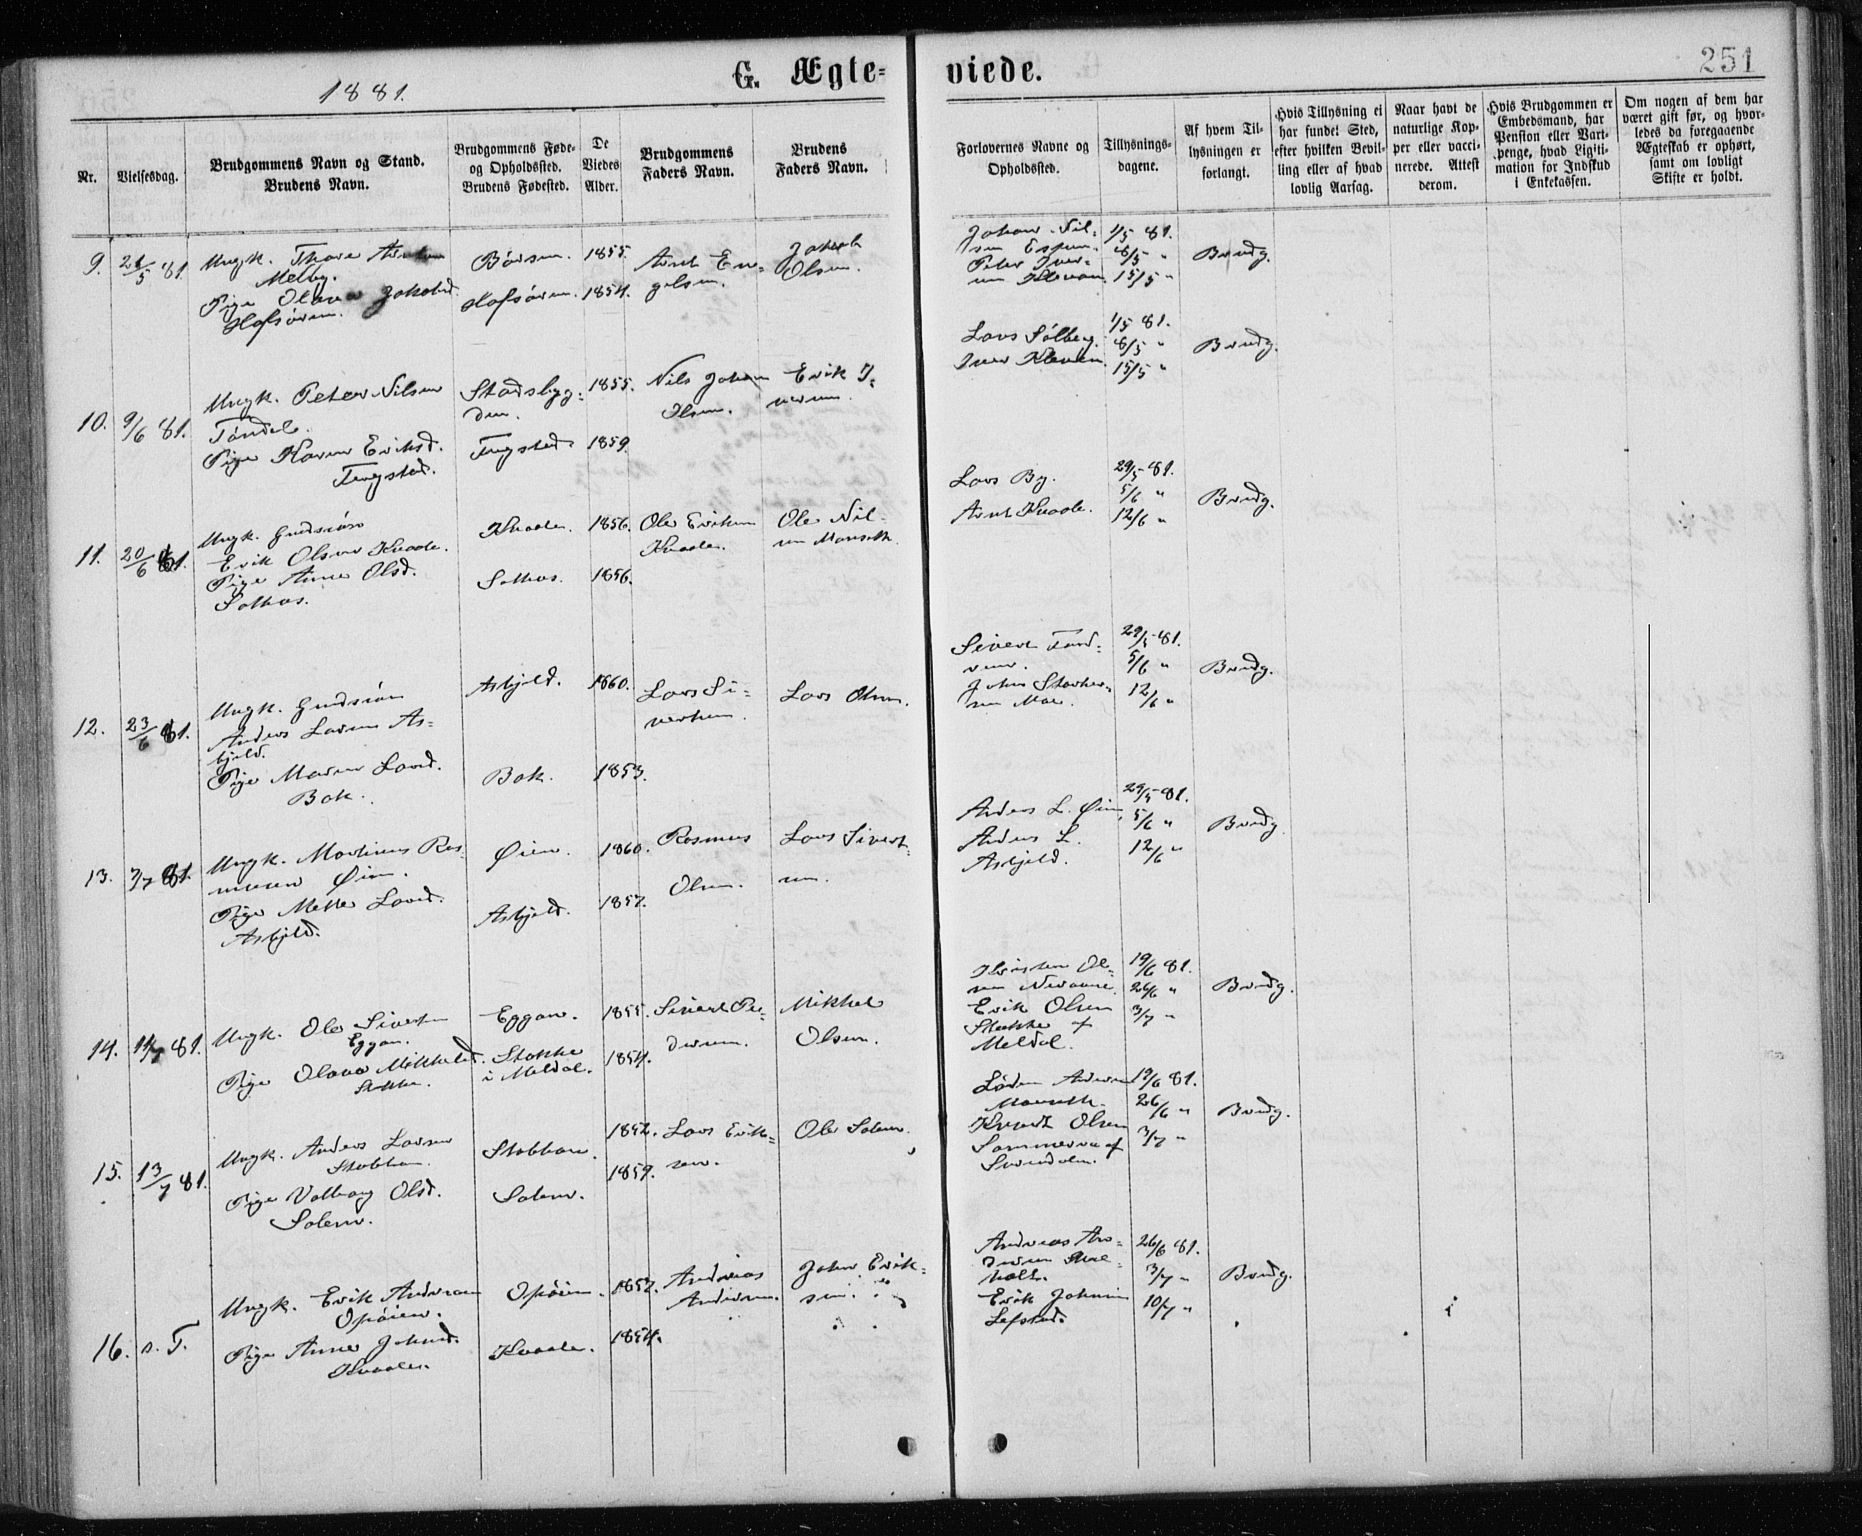 1881.
G. Ægte-
viede.
251
Nr.
Vielsesdag.
Brudgommens Navn og Stand.
Brudens Navn.
Brudgommens Føde-
og Opholdssted.
Brudens Fødested.
De
Viedes
Alder.
Brudgommens
Faders Navn.
Brudens
Faders Navn.
Forlovernes Navne og
Opholdssted.
Tillysnings-
dagene.
Af hvem Til-
lysningen er
forlangt.
Hvis Tillysning ei
har fundet Sted,
efter hvilken Bevil-
ling eller af hvad
lovlig Aarsag.
Naar havt de
naturlige Kop-
per eller vacci-
nerede. Attest
derom.
Hvis Brudgommen er
Embedsmand, har
Pension eller Vart-
penge, hvad Legiti-
mation for Indskud
i Enkekassen.
Om nogen af dem har
været gift før, og hvor-
ledes da foregaaende
Ægteskab er ophørt,
samt om lovligt
Skifte er holdt.
9.
Ungk. Thore
Melby.
Pige Jakobd.
Hofsøren.
Børsen.
Hofsøren.
1855.
1854.
Arnt En-
gelsen.
Jakob
Olsen.
Johan Nil-
sen
Peter Iver-
sen Kleven
1/5 81.
8/5 "
15/5 "
Brudg.
10. 9/6 81.
Ungk. Peter Nilsen
Tøndel.
Pige Karen Eriksd.
Tingstad.
Stadsbyg-
den.
Tingstad
1855.
1859.
Nils Johan
Olsen.
Erik I-
versen.
Lars Solberg.
Iver Kleven
1/5 81.
8/5 "
15/5 "
Brudg.
11. 20/6 81.
Ungk. Gaardssøn
Erik Olsen Kvaale.
Pige Anne Olsd.
Solhus.
Kvaale.
Solhus.
1856.
1856.
Ole Eriksen
Kvaale.
Ole Nil-
sen
Lars By.
Arnt Kvaale.
29/5 81.
5/6 "
12/6 "
Brudg.
12. 23/6 81.
Ungk. Gaardssøn
Anders Larsen As-
bjeld.
Pige Maren Larsd.
Bak.
Asbjeld.
Bak.
1860.
1853.
Lars Si-
vertsen.
Lars Olsen.
Sivert
Moe.
29/5 81.
5/6 "
12/6 "
Brudg.
13. 7/7 81.
Ungk. Martinus Ras-
musen Øien.
Pige Mette Larsd.
Asbjeld.
Øien.
Asbjeld.
1860.
1857.
Rasmus
Olsen.
Lars Sivert-
sen.
Anders L. Øien
Anders L.
Asbjeld.
29/5 81.
5/6 "
12/6 "
Brudg.
14. 11/7 81.
Ungk. Ole Sivertsen
Eggan.
Pige Olava Mikkelsd.
Stokke.
Eggan.
Stokke
i Meldal.
1855.
1854.
Sivert Pe-
dersen.
Mikkel
Olsen.
Kristen Ol-
sen
Erik Olsen
Stokke af
Meldal.
19/6 81.
26/6 "
3/7 "
Brudg.
15. 13/7 81.
Ungk. Anders Larsen
Stobban.
Pige Valborg Olsd.
Solem.
Stobban.
Solem.
1852.
1859.
Lars Erik-
sen.
Ole Solem.
Anders
Olsen
af
19/6 81.
26/6 "
3/7 "
Brudg.
16. s. D.
Ungk. Erik Andersen
Opøien.
Pige Anne Johnsd.
Kvaale.
Opøien.
Kvaale.
1852.
1854.
Andreas
Andersen.
John Erik-
sen.
Andreas An-
dersen
Erik Johnsen
Lefstad.
26/6 81.
3/7 "
10/7 "
Brudg.